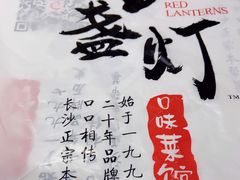 RED
LANTERNS
盏灯
TM
口味菜馆
始于一九九
二十年品牌
口口相传
长沙正宗本